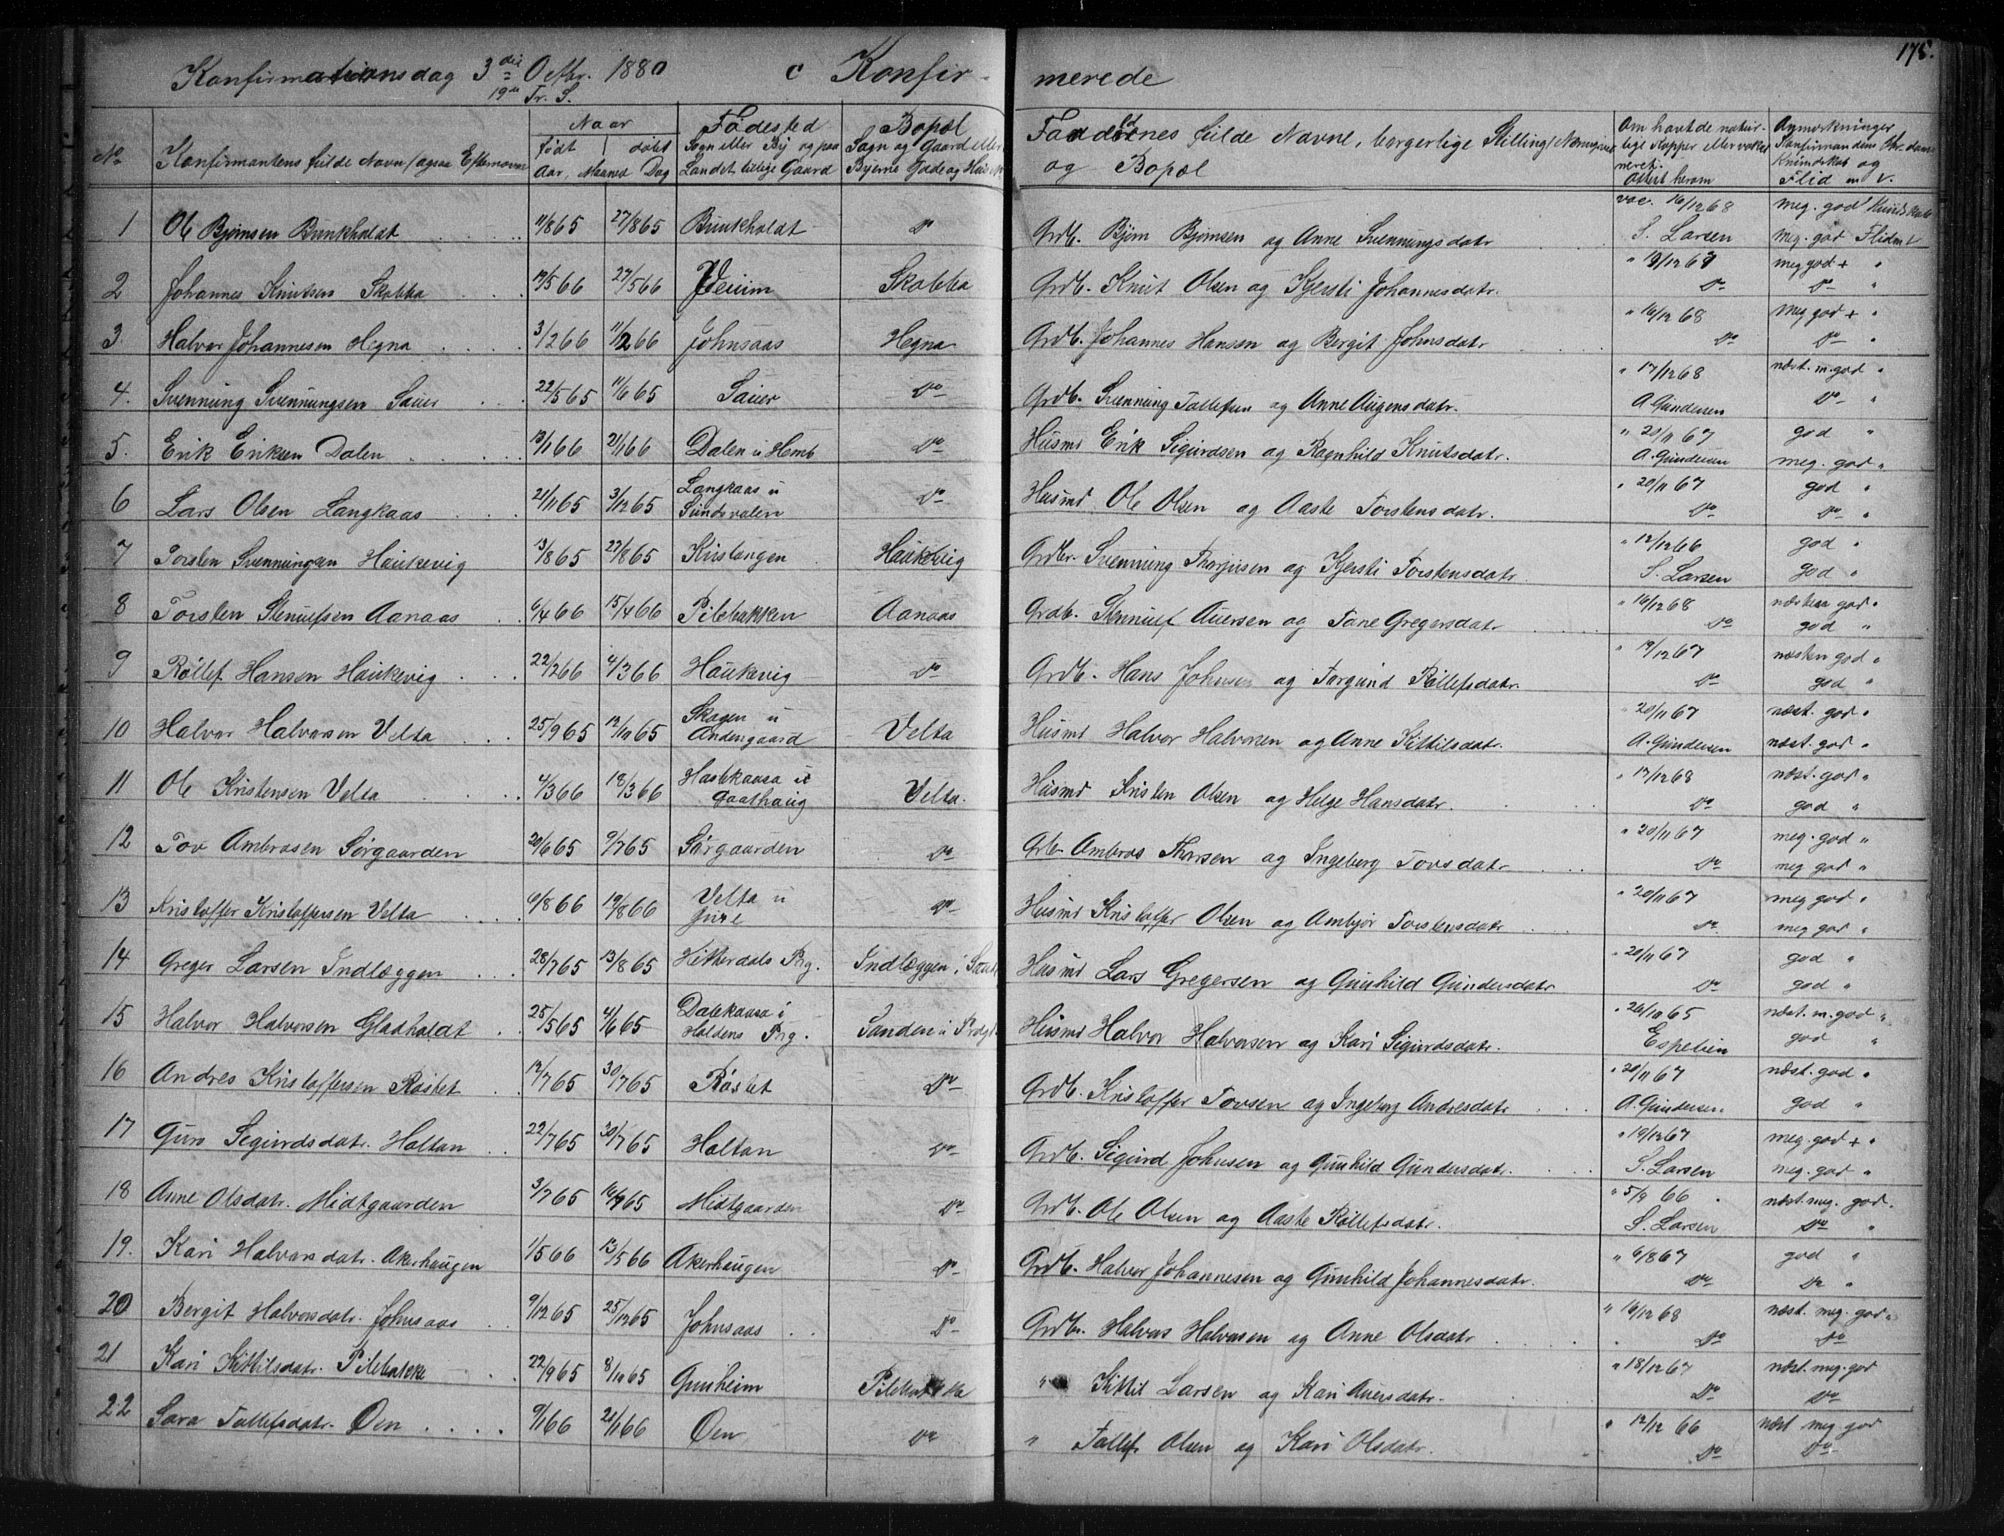 175.
Konfirmationsdag 3die Octbr. 1880 c Konfirmerede
19de Tr. S.
No Konfirmantens fulde Navn (ogsaa Efternavn) Naar født døbt Aar, Maaned Dag Fødested Sogn eller By og paa Landet tillige Gaard Bopæl Sogn og Gaard eller Byens Gade og Hus No Forældrenes fulde Navne, borgerlige Stilling og Bopæl Om havt de naturlige Kopper eller vaccineret; Attest herom Anmærkninger Konfirmandens Kr. doms Kundskab og Flid m. v.
1 Ole Bjørnsen Bunkholdt 11/8 65 27/8 65 Bunkholdt Do Grdb. Bjørn Bjørnsen og Anne Svenningsdatr vac. 16/12 68 S. Larsen meg. god Kundskab meg. god Flid m v
2 Johannes Knutsen Skobba 17/5 66 27/5 66 Veium Skobba Grdb. Knut Olsen og Kjersti Johannesdatr. " 19/12 67 Do meg god + " Do "
3. Halvor Johannesen Hegna 3/2 66 11/2 66 Johnsaas Hegna Grdb. Johannes Hansen og Bergit Johnsdatr " 16/12 68 Do meg god + " Do "
4. Svennung Svennungsen Sauer 22/5 65 11/6 65 Sauer Do Grdb. Svennung Tollefsen og Anne Augensdatr. " 17/12 68 A Gundersen næst. m. god " Do "
5. Erik Eriksen Dalen 13/1 66 21/1 66 Dalen u Hemb Do Husmd Erik Sigurdsen og Ragnhild Knutsdatr. " 20/11 67 A. Gundersen god " meg. god "
6 Lars Olsen Langkaas 21/11 65 3/12 65 Langkaas u Sundsvalen Do Husmd Ole Olsen og Aaste Torstensdatr. " 20/11 67 Do god " Do "
7 Torsten Svenningsen Haukevig 13/8 65 27/8 65 Kirstangen Haukevig Grdbr. Svenning Thorjusen og Kjersti Torstensdatr " 12/12 66 S. Larsen god " god "
8 Torsten Stenulfsen Aanaas 6/4 66 15/4 66 Pilebakken Aanaas Grdb. Stennulf Auersen og Tone Gregersdatr " 16/12 68 Do næsten god " god "
9 Rollef Hansen Haukevig 22/2 66 4/3 66 Haukevig Do Grdb. Hans Johnsen og Torgund Rollefsdatr. " 19/12 67 Do næsten god " god "
10 Halvor Halvorsen Velta 25/9 65 12/10 65 Skogen u Andengaard Velta Husmd Halvor Halvorsen og Anne Kittilsdatr. " 20/11 67 A. Gundersen næst. god " næst. god "
11 Ole Kristensen Velta 4/3 66 18/3 66 Haslekaasa u Gaathaug Velta. Husmd Kristen Olsen og Helge Hansdatr. " 17/12 68 Do næst. god " god "
12 Tov Ambrosen Sørgaarden 20/6 65 9/7 65 Sørgaarden Do Grb. Ambros Thorsen og Ingeborg Tovsdatr " 20/11 67 Do meg. god " meg god "
13 Kristoffer Kristoffersen Velta 6/8 66 19/8 66 Velta u Jure Do Husmd Kristoffer Olsen og Ambjør Torstensdatr " 20/11 67 Do meg god " meg god "
14 Greger Larsen Indlæggen 28/7 65 13/8 65 Hitterdals Prg. Indlæggen i Sau Husmd Lars Gregersen og Gunhild Gundersdatr " 20/11 67 Do god " god "
15 Halvor Halvorsen Gladholdt 25/5 65 4/6 65 Dalekaasa i Holdens Prg. Sanden u Husmd Halvor Halvorsen og Kari Sigurdsdatr. " 26/10 65 Espelien næst. m. god " god "
16 Andres Kristoffersen Røstet 12/7 65 30/7 65 Røstet Do Grdb. Kristoffer Tovsen og Ingeborg Andresdatr " 20/11 67 A. Gundersen næst. god " god "
17 Guro Sigurdsdatr. Holtan 22/7 65 30/7 65 Holtan Do Grdb. Sigurd Johnsen og Gunhild Gundersdatr. " 19/12 67 S. Larsen meg. god + " meg. god "
18 Anne Olsdatr. Midtgaarden 3/7 65 16/7 65 Midtgaarden Do Grdb. Ole Olsen og Aaste Rollefsdatr. " 5/9 66 S. Larsen næst. meg. god. Do "
19. Kari Halvorsdatr. Akerhaugen 1/5 66 13/5 66 Akerhaugen Do Grdb. Halvor Johannesen og Gunhild Johannesdatr. " 6/8 67 Do god " Do "
20 Bergit Halvorsdatr. Johnsaas 9/12 65 25/12 65 Johnsaas Do Grdbr. Halvor Halvorsen og Anne Olsdatr " 16/12 68 Do næst. meg. god " Do
21 Kari Kittilsdatr. Pilebakke 22/9 65 8/10 65 Gunheim Pilebakke " Kittil Larsen og Kari Auersdatr. " 18/12 67 Do næst. meg. god Do
22 Sara Tollefsdatr. Øen 9/1 66 21/1 66 Øen Do " Tollef Olsen og Kari Olsdatr. " 12/12 66 Do næst meg god Do